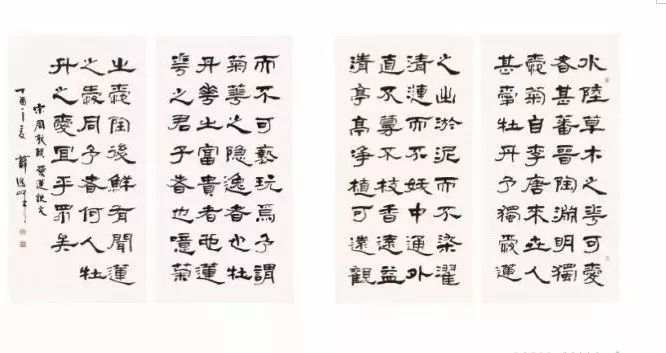 水陸草木之華可愛
者甚蕃晉陶淵明獨
愛菊自李唐來世人
甚愛牡丹予獨愛蓮
之出淤泥而不染濯
清漣而不妖中通外
直不蔓不枝香遠益
清亭亭净植可遠觀
而不可褻玩焉予謂
菊華之隐逸者也牡
丹華之富貴者也蓮
華之君子者也噫菊
之愛陶後鮮有聞蓮
之愛同予者何人牡
丹之愛宜乎眾矣
宋周敦頤愛蓮說文
丁酉之夏